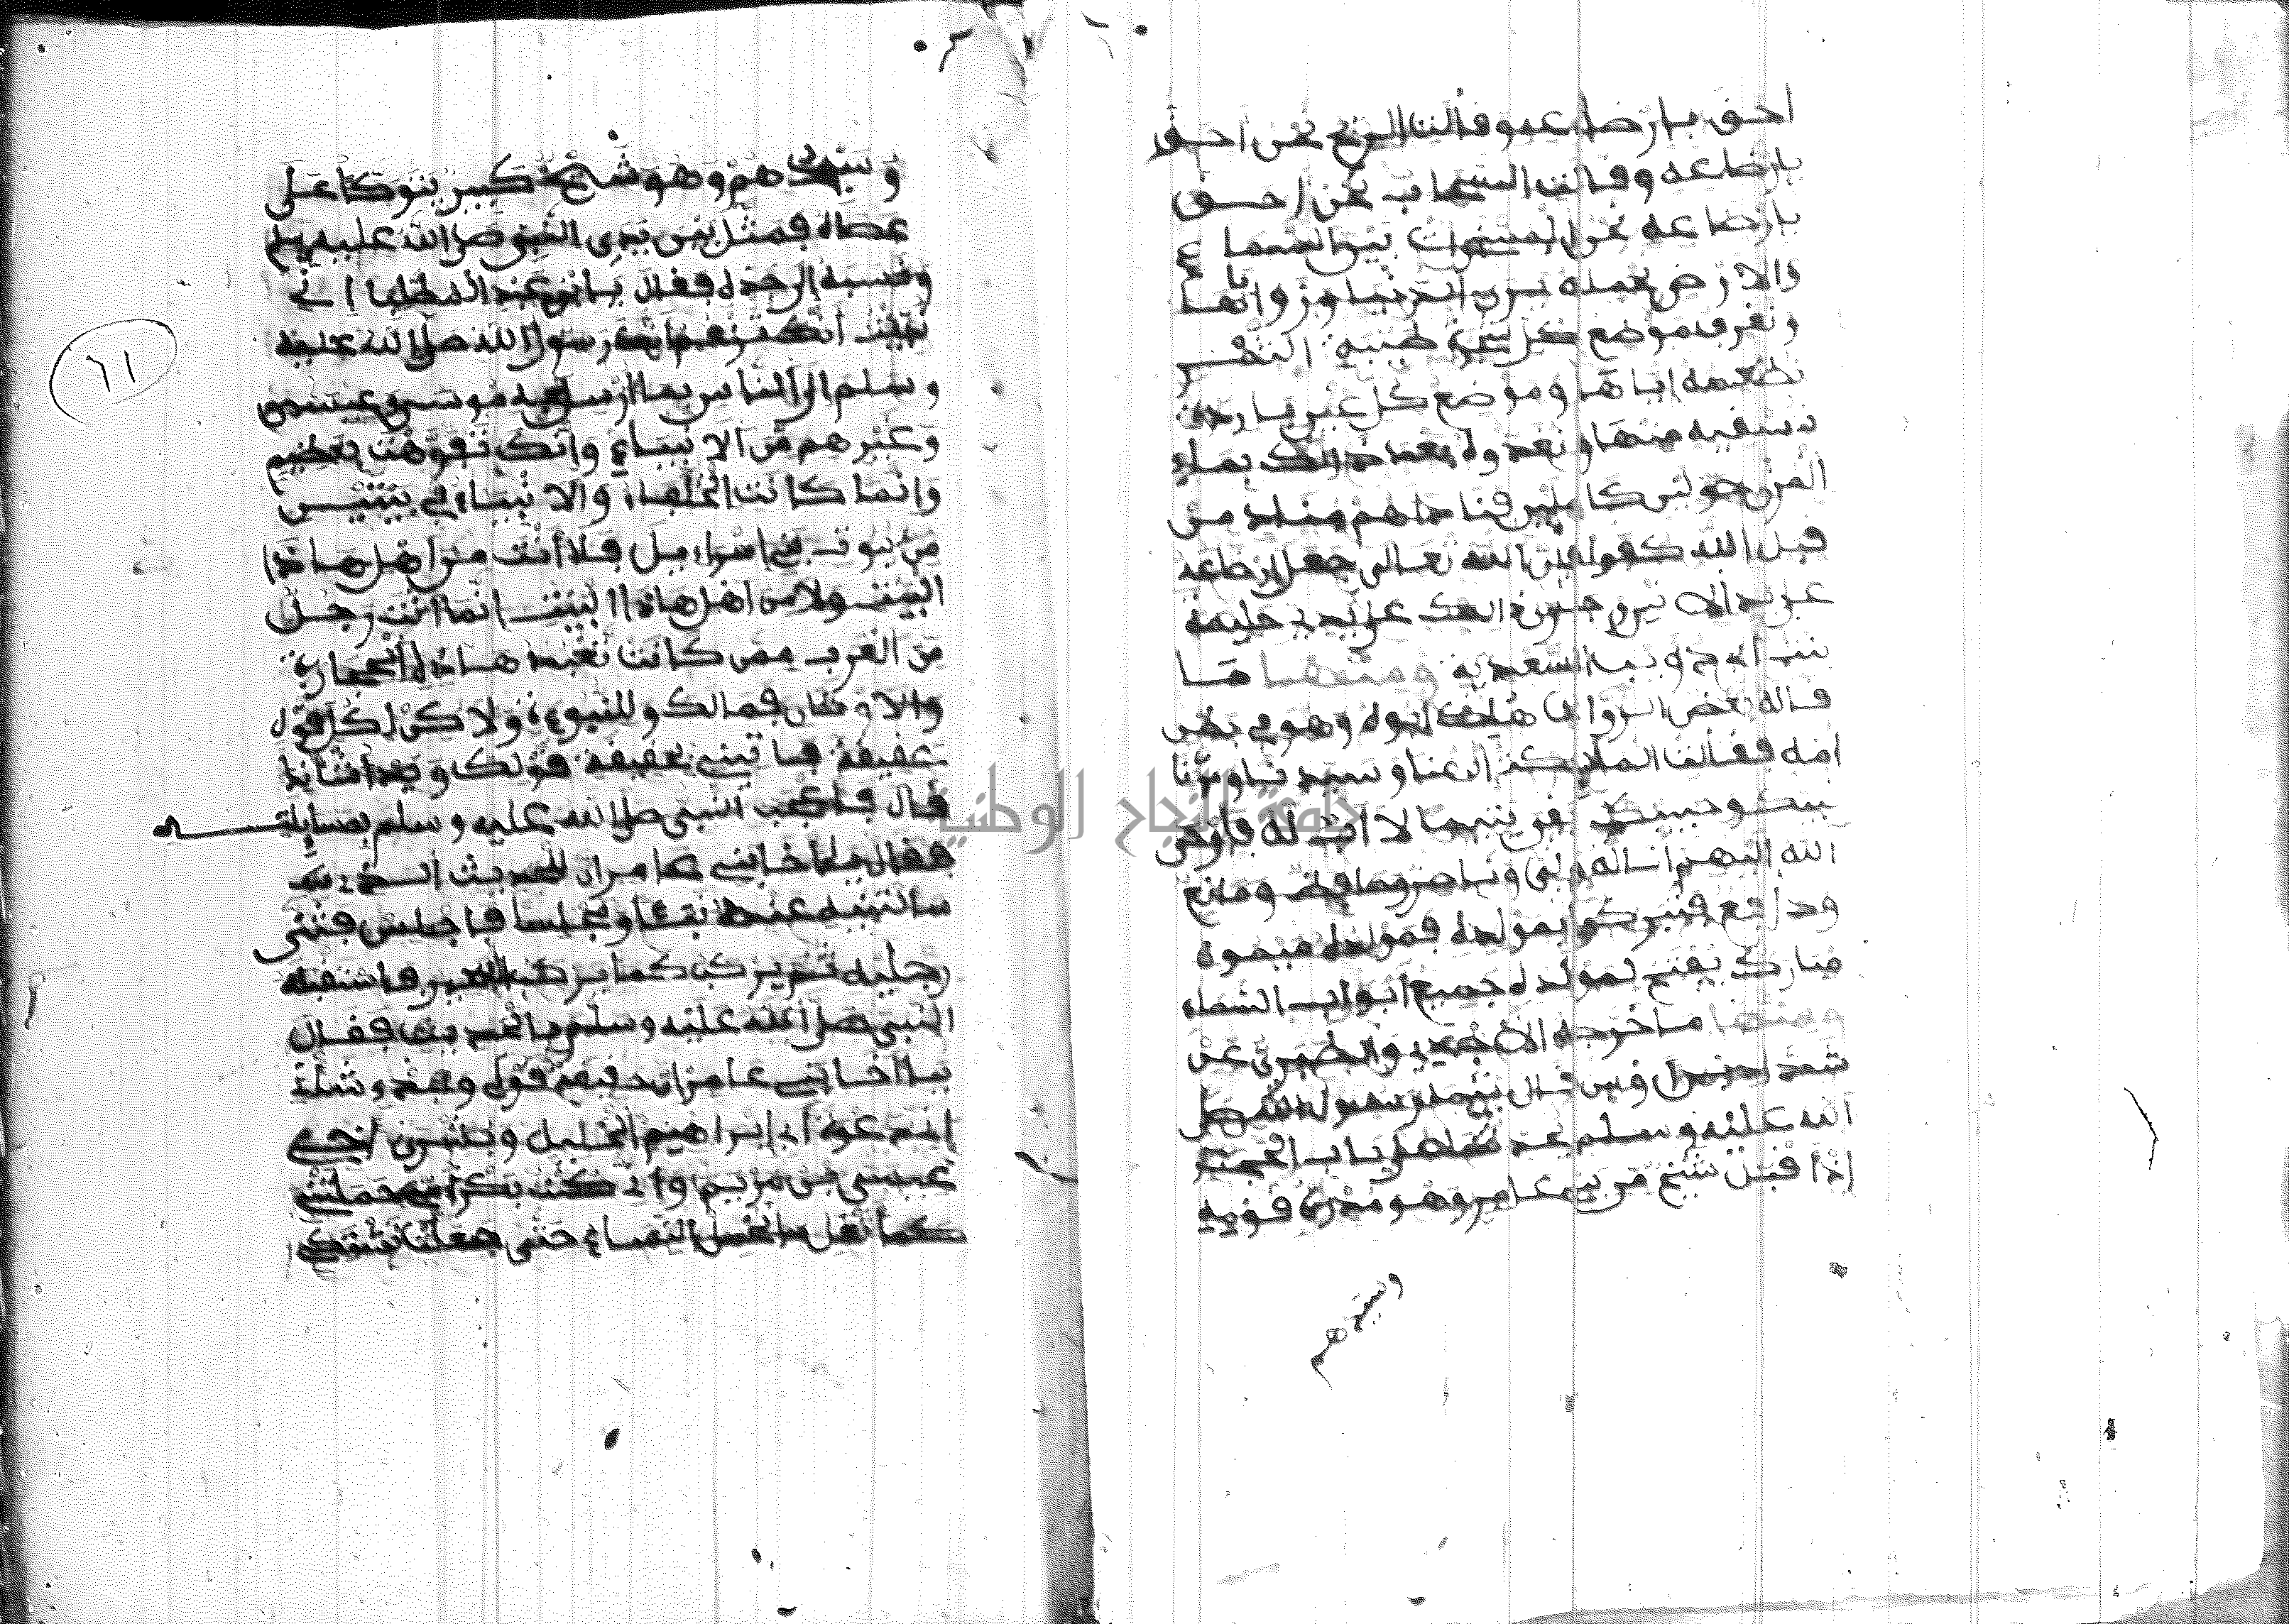 احق بارضاعه وقالت الريح نحن احق
بارضاعه وقالت السحاب نحن احق
بارضاعه نحن المسخرات بين السماء
والارض نحمله برب الدنيا ومزواياها
ونعرف موضع كل شجرة طيبة الثمر
نطعمه اياها وموضع كل عين باردة
نسقيه منها ونغدوه بعد ذالك بماء
المزن حولين كاملين فناداهم مناد من
قبل الله كفوا فإن الله تعالى جعل ارضاعه
على يد الانس وجعل ذالك على يدي حليمة
بنت أبي ذؤيب السعدية ومنها ما
قاله بعض الرواة هلك ابوه وهو في بطن
امه فقالت الملائكة الهنا وسيدنا ومولانا
نبيك وحبيبك بقي يتيما لا اب له فأوحى
الله اليهم انا له ولي وناصر وحافظ ومانع
ودافع فتبركوا بمولده فمولده ميمون
مبارك يفتح لمولده جميع ابواب السماء
ومنها ما خرجه الاجري والطبري عن
شداد بن اوس قال بينما رسول الله صلى
الله عليه وسلم يحدثنا على باب الحجرة
إذ أقبل شيخ من بني عامر وهو مدرة قومه
وسيدهم
وسيدهم وهو شيخ كبير يتوكأ على
عصاه فمثل بين يدي النبي صلى الله عليه وسلم
ونسبه إلى جده فقال يا ابن عبد المطلب إني
نبئت أنك تزعم أنك رسول الله صلى الله عليه
وسلم الى الناس بما أرسل به موسى وعيسى
وغيرهم من الانبياء وانك تفوهت بعظيم
وانما كانت الخلفاء والانبياء في بيتين
من بيوت بني إسراءيل فلا أنت من اهل هاذا
البيت ولا من اهل هاذا البيت إنما أنت رجل
من العرب ممن كانت تعبد هاذه الحجارة
والاوثان فمالك وللنبوة ولاكن لكل قول
حقيقة فاتيني بحقيقة قولك وبدأ شأنك
قال فأعجب النبي صلى الله عليه وسلم بمسايلته
فقال يا أخا بني عامر ان للحديث الذي
سألتني عنه نبئا ومجلسا فاجلس فثنى
رجليه ثم برك كما يبرك البعير فاستقبله
النبي صلى الله عليه وسلم بالحديث فقال
يا أخا بني عامر ان حقيقة قولي وبدء شأني
اني دعوة أبي إبراهيم الخليل وبشرى اخي
عيسى بن مريم واني كنت بكر أمي حملتني
كأثقل ما تحمل النساء حتى جعلت تشتكي
٦١
جامعة النجاح الوطنية